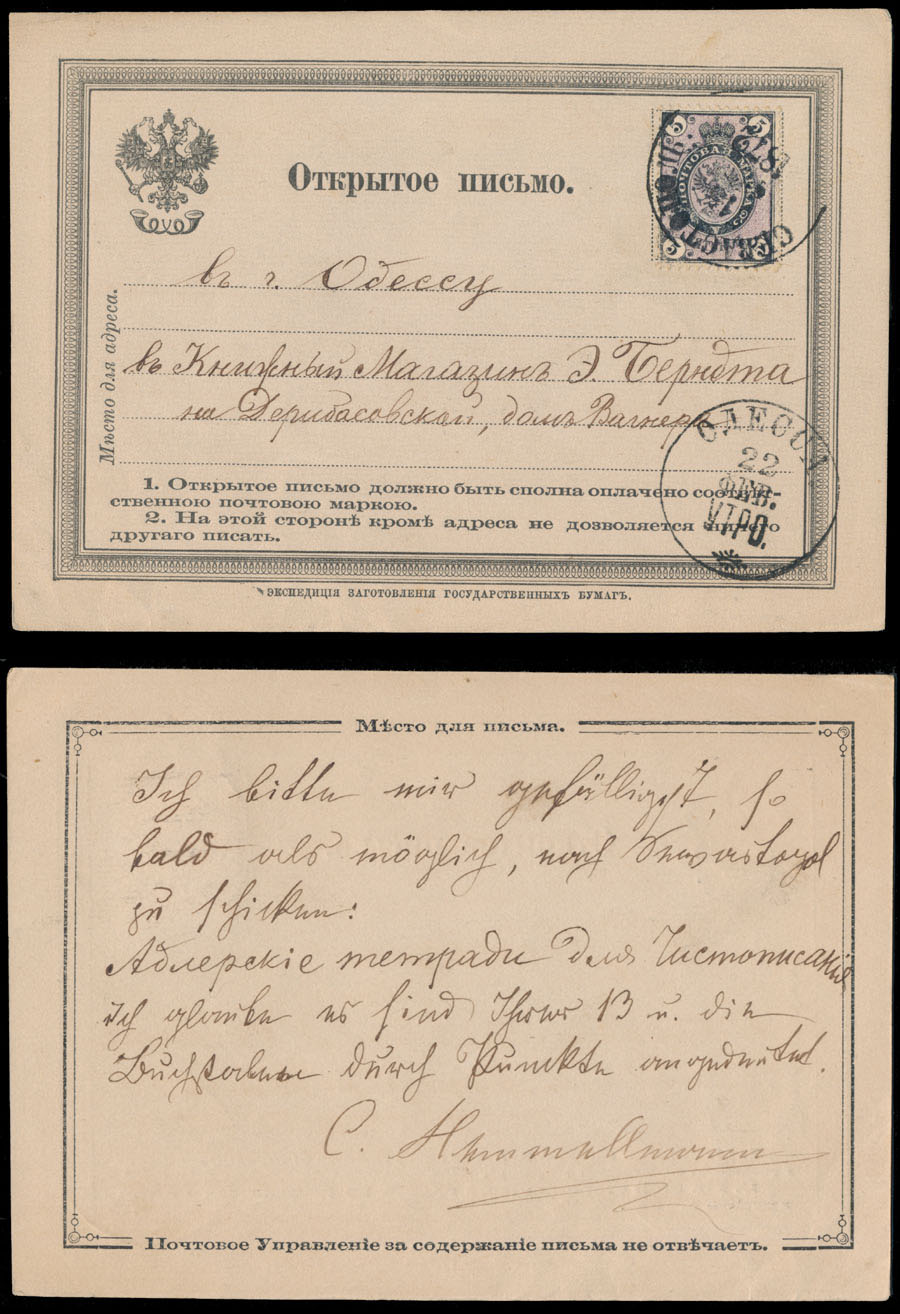 Открытое письмо.
5 5
ПОЧТОВАЯ МАРКА
5 5
СЕВАСТОПОЛЬ.
въ г. Одессу
Мѣсто для адреса.
въ Книжный Магазинъ Э. Берндта
на Дерибасовской, домъ Вагнеръ
ОДЕССА
22
ФЕВ.
УТРО.
1. Открытое письмо должно быть сполна оплачено соответ-
ственною почтовою маркою.
2. На этой сторонѣ кромѣ адреса не дозволяется ничего
другаго писать.
ЭКСПЕДИЦІЯ ЗАГОТОВЛЕНІЯ ГОСУДАРСТВЕННЫХЪ БУМАГЪ.
Мѣсто для письма.
Ich bitte mir gefälligst, so
bald als möglich, nach Sewastopol
zu schicken:
Адлерскіе тетради для Чистописанія
ich glaube es sind Ihrer 13 u. die
Buchstaben durch Punkte angedeutet.
C. Hammellmann
Почтовое Управленіе за содержаніе письма не отвѣчаетъ.